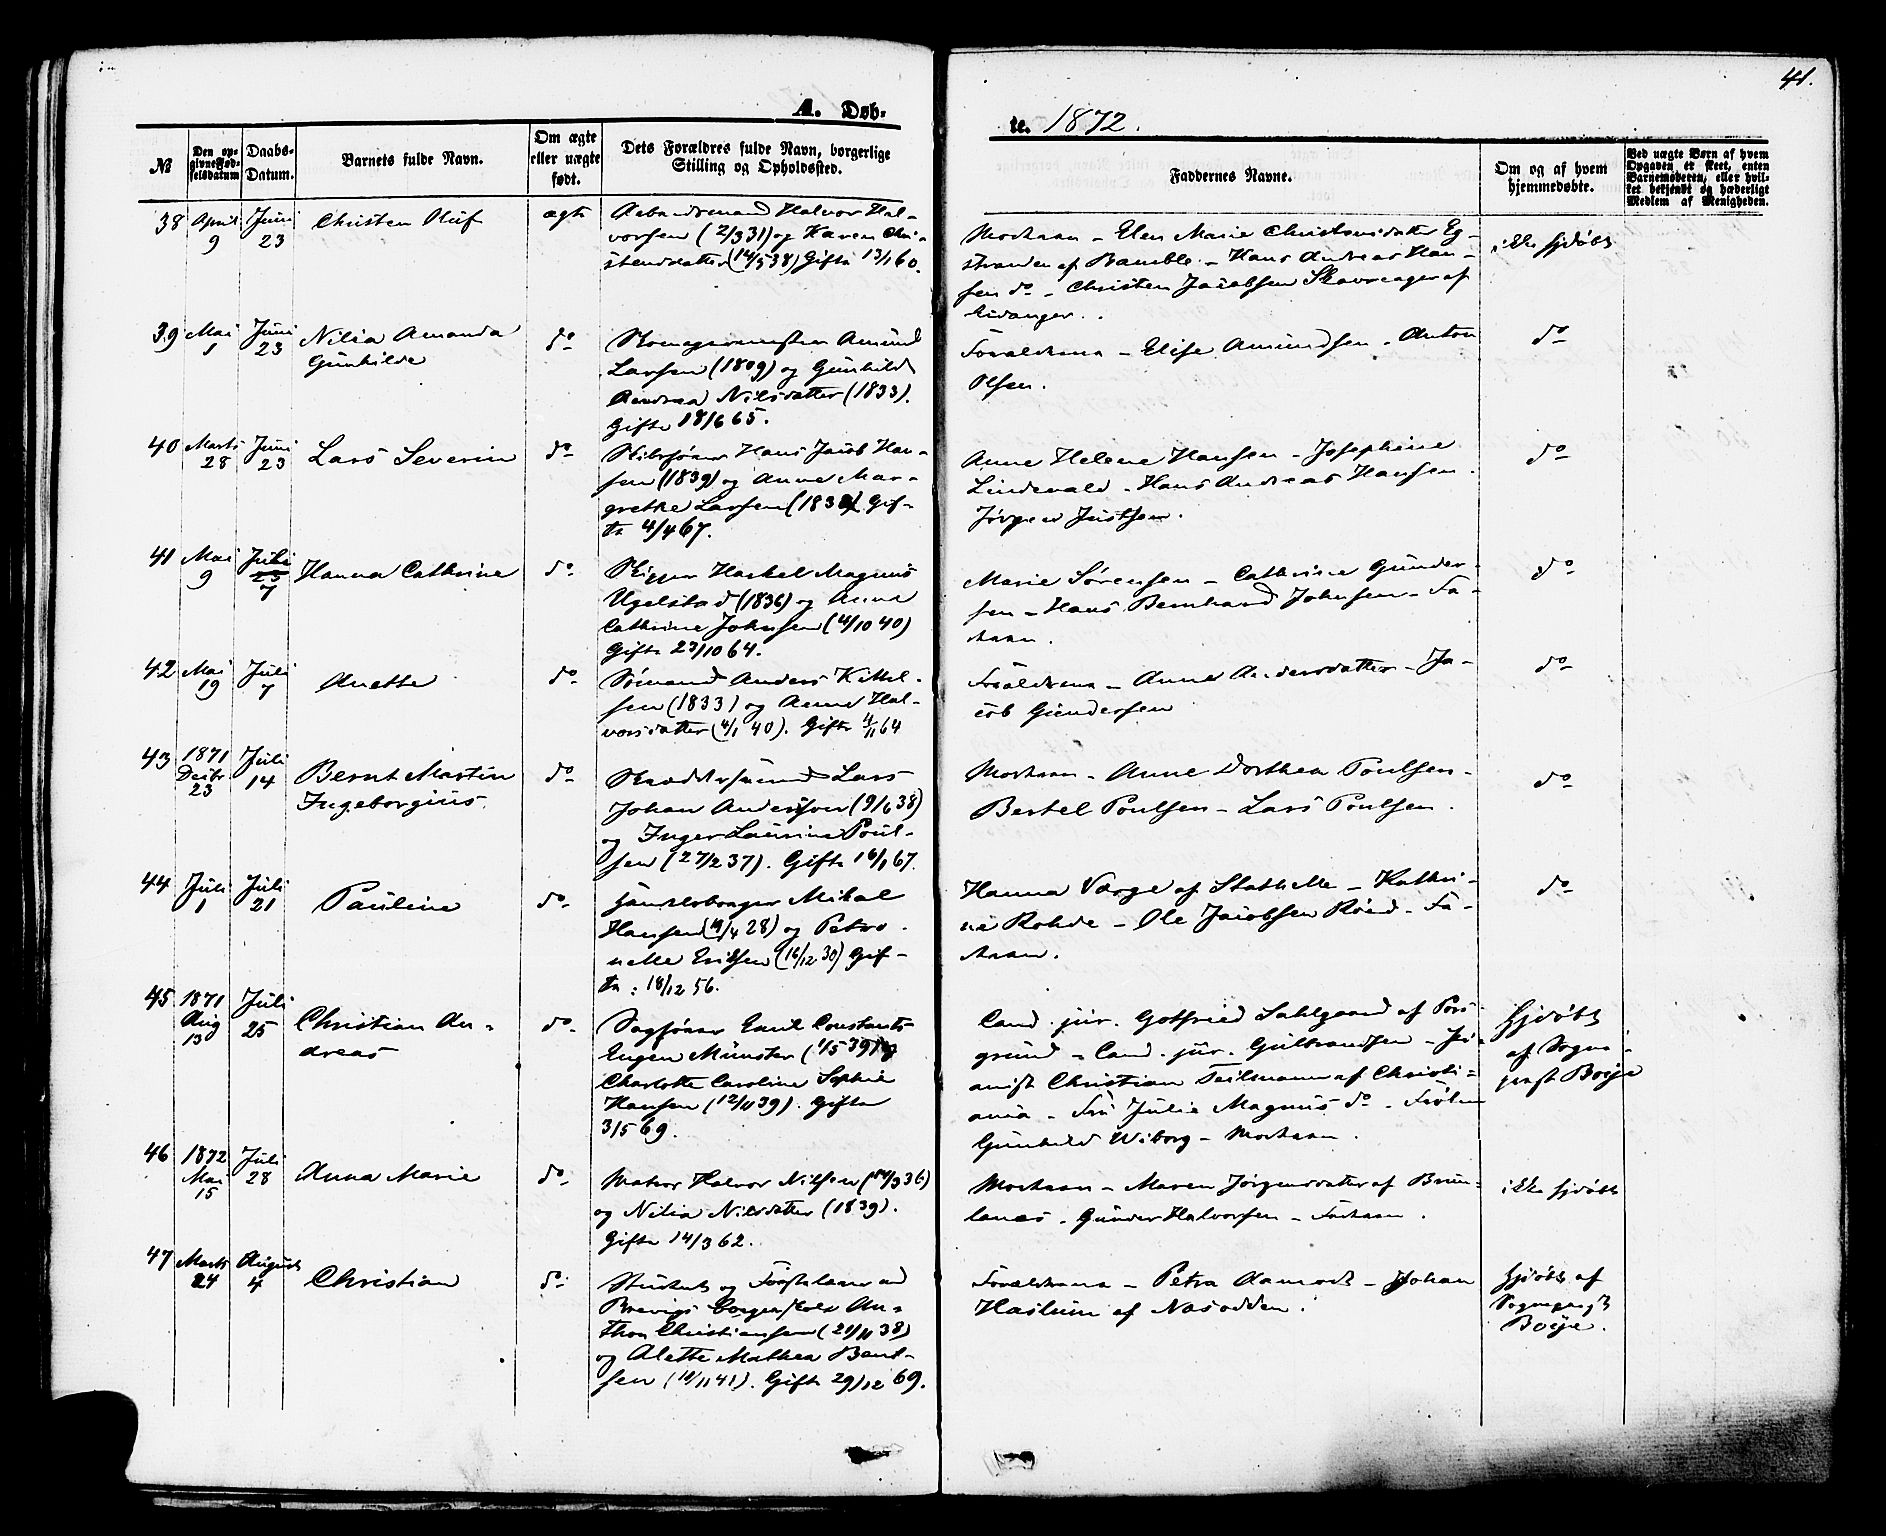 41.
A. Døb-
te. 1872.
№
Den op-
givne Fød-
selsdatum
Daabs-
Datum.
Barnets fulde Navn.
Om ægte
eller uægte
født.
Dets Forældres fulde Navn, borgerlige
Stilling og Opholdssted.
Faddernes Navne.
Om og af hvem
hjemmedøbte.
Ved uægte Børn af hvem
Opgaven er skeet, enten
Barnemoderen, eller hvil-
ket bekjendt og hæderligt
Medlem af Menigheden.
38 April 9
Juni 23
Christen Oluf
ægte
Arbeidsmand Halvor Hal-
vorsen (2/3 31) og Karen Chri-
stensdatter (14/5 38) Gifte 13/1 60.
Moderen - Elen Marie Christensdatter Eg-
stranden af Bamble - Hans Andreas Han-
sen do - Christen Jacobsen Skavreager af
Eidanger.
ikke hjdøbt
39 Mai 1
Juni 23
Nilia Amanda
Gunhilde
do
Skomagermester Amund
Larsen (1809) og Gunhild
Andrea Nilsdatter (1833).
Gifte 18/6 65.
Forældrene - Elise Amundsen - Anton
Olsen.
do
40 Marts 28
Juni 23
Lars Severin
do
Skibsfører Hans Jacob Han-
sen (1839) og Anne Mar-
grethe Larsen Gif-
te 4/4 67.
Anne Helene Hansen - Josephine
Lindevald - Hans Andreas Hansen.
Jørgen Justsen.
do
41 Mai 9
Juli 7
Hanna Cathrine
do
Skipper Haskel Magnus
Ugelstad (1836) og Anna
Cathrine Johnsen (4/10 40)
Gifte 23/10 64.
Marie Sørensen - Cathrine Gunder-
sen - Hans Bernhard Johnsen - Fa-
deren.
do
42 Mai 19
Juli 7
Anette
do
Sømand Anders Kittel-
sen (1833) og Anne Hal-
vorsdatter (4/1 40). Gifte 4/11 64
Forældrene - Anne Andersdatter - Ja-
cob Gundersen
do
43 1871 Decbr 23
Juli 14
Bernt Martin
Ingeborgius.
do
Skræddersvend Lars
Johan Andersen (9/6 38)
og Inger Laurine Poul-
sen (27/2 37). Gifte 16/1 67.
Moderen - Anne Dorthea Poulsen -
Bertel Poulsen - Lars Poulsen.
do
44 Juli 1
Juli 21
Pauline
do
Handelsborger Mikal
Hansen og Petro-
nelle Eriksen (16/12 30) Gif-
te: 18/12 56.
Hanna Værge af Stathelle - Kathri-
ne Rohde - Ole Jacobsen Røed - Fa-
deren.
do
45 1871 Aug 13
Juli 25
Christian An-
dreas
do
Sagfører Emil Constants
Eugen Münster (1/5 39) og
Charlotte Caroline Sophie
Hansen (12/11 39). Gifte
3/5 69.
Cand. jur. Gotfried Sahlgaard af Pors-
grund - Cand. jur. Gulbrandsen - Ju-
anist Christian Teilmann af Christi-
ania - Fru Julie Magnus do - Frøken
Gunhild Wiborg - Moderen.
Hjdøbt
af Sogne-
prest Boeje
46 1872 Mai 15
Juli 28
Anna Marie
do
Matros Halvor Nilsen
og Nilia Nilsdatter (1839).
Gifte 14/3 62.
Moderen - Maren Jørgensdatter af Brun-
lanæs - Gunder Halvorsen - Faderen.
ikke hjdøbt
47 Marts 24
August 4
Christian
do
Student og Førstelærer ved
Brevigs Borgerskole An-
thon Christiansen (21/11 38)
og Alette Mathea Bent-
sen (10/11 41). Gifte 29/12 69.
Forældrene - Petra Aamodt - Johan
Haslum af Nesodden.
Hjdøbt af
Sogneprest
Boeje.